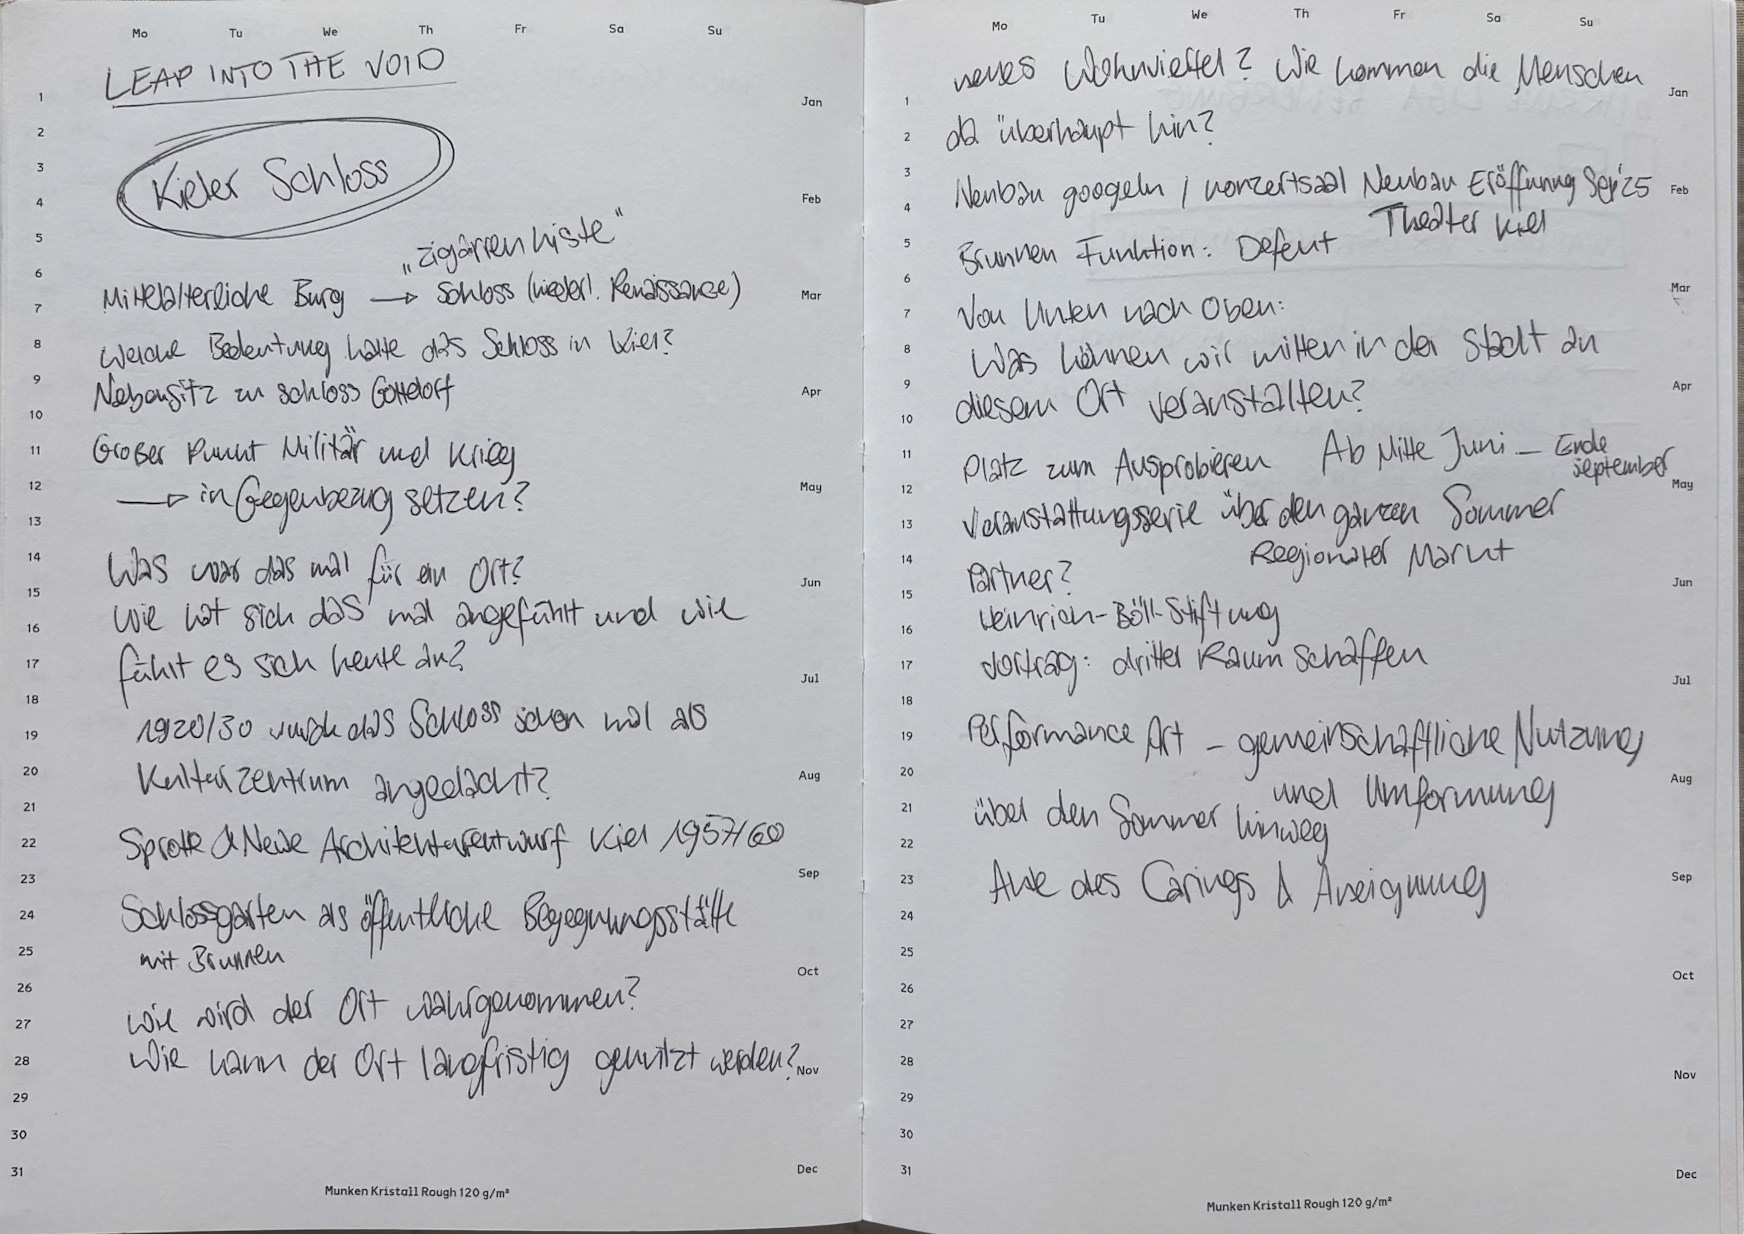 Mo Tu We Th Fr Sa Su
LEAP INTO THE VOID
Kieler Schloss
„Zigarrenkiste"
Mittelalterliche Burg → Schloss (niederl. Renaissance)
Welche Bedeutung hatte das Schloss in Kiel?
Nebensitz zu Schloss Gottdorf
Großer Punkt Militär und Krieg
→ in Gegenbezug setzen?
Was war das mal für ein Ort?
Wie hat sich das mal angefühlt und wie
fühlt es sich heute an?
1920/30 wurde das Schloss schon mal als
Kulturzentrum angedacht?
Sprotte & Neve Architekturentwurf Kiel 1957/60
Schlossgarten als öffentliche Begegnungsstätte
mit Brunnen
Wie wird der Ort wahrgenommen?
Wie kann der Ort langfristig genutzt werden?
1
2
3
4
5
6
7
8
9
10
11
12
13
14
15
16
17
18
19
20
21
22
23
24
25
26
27
28
29
30
31
Jan
Feb
Mar
Apr
May
Jun
Jul
Aug
Sep
Oct
Nov
Dec
Munken Kristall Rough 120 g/m²
Mo Tu We Th Fr Sa Su
neues Wohnviertel? Wie kommen die Menschen
da überhaupt hin?
Neubau googeln / Konzertsaal Neubau Eröffnung Sep'25
Theater Kiel
Brunnen Funktion: Defekt
Von Unten nach Oben:
Was können wir mitten in der Stadt an
diesem Ort veranstalten?
Platz zum Ausprobieren Ab Mitte Juni – Ende
September
Veranstaltungsserie über den ganzen Sommer
Regionaler Markt
Partner?
Heinrich-Böll-Stiftung
Vortrag: dritter Raum schaffen
Performance Art – gemeinschaftliche Nutzung
und Umformung
über den Sommer hinweg
Akte des Carings & Aneignung
1
2
3
4
5
6
7
8
9
10
11
12
13
14
15
16
17
18
19
20
21
22
23
24
25
26
27
28
29
30
31
Jan
Feb
Mar
Apr
May
Jun
Jul
Aug
Sep
Oct
Nov
Dec
Munken Kristall Rough 120 g/m²